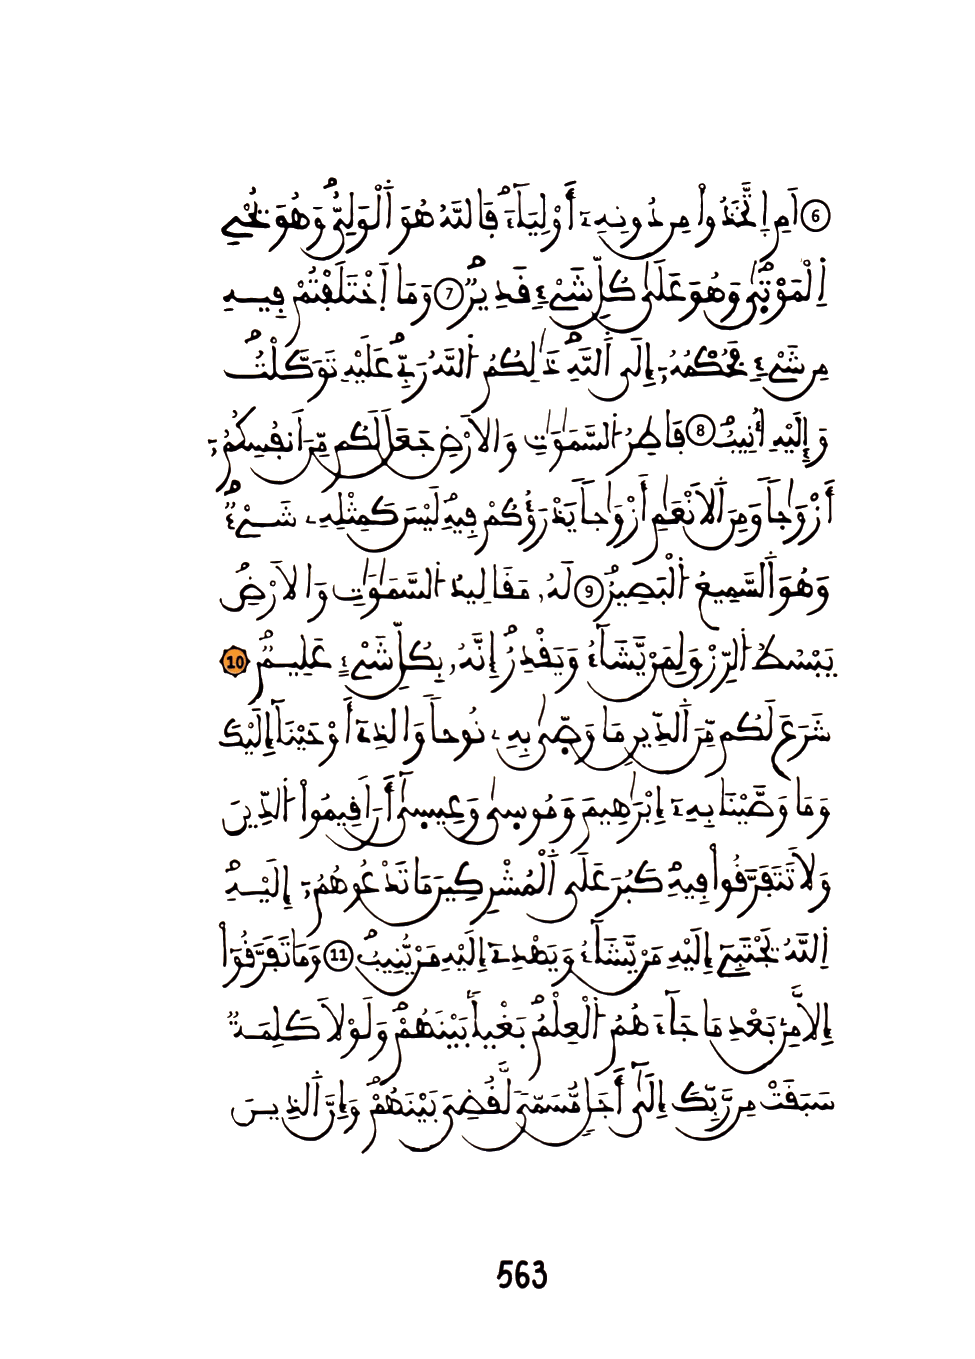 6 اَمِ اِ۪تَّخَذُواْ مِن دُونِهِۦٓ أَوْلِيَآءَۖ فَاللَّهُ هُوَ اَ۬لْوَلِيُّۖ وَهُوَ يُحْيِ
اِ۬لْمَوْت۪يٰۖ وَهُوَ عَلَيٰ كُلِّ شَےْءٖ قَدِيرٞۖ 7 وَمَا اَ۪خْتَلَفْتُمْ فِيهِ
مِن شَےْءٖ فَحُكْمُهُۥٓ إِلَي اَ۬للَّهِۖ ذَٰلِكُمُ اُ۬للَّهُ رَبِّےۖ عَلَيْهِ تَوَكَّلْتُۖ
وَإِلَيْهِ أُنِيبُۖ 8 فَاطِرُ اُ۬لسَّمَٰوَٰتِ وَالَارْضِ جَعَلَ لَكُم مِّنَ اَنفُسِكُمُۥٓ
أَزْوَٰجاٗ وَمِنَ اَ۬لَانْعَٰمِ أَزْوَٰجاٗ يَذْرَؤُكُمْ فِيهِۖ لَيْسَ كَمِثْلِهِۦ شَےْءٞۖ
وَهُوَ اَ۬لسَّمِيعُ اُ۬لْبَصِيرُۖ 9 لَهُۥ مَقَالِيدُ اُ۬لسَّمَٰوَٰتِ وَالَارْضِۖ
يَبْسُطُ اُ۬لرِّزْقَ لِمَنْ يَّشَآءُ وَيَقْدِرُۖ إِنَّهُۥ بِكُلِّ شَےْءٍ عَلِيمٞۖ 10
شَرَعَ لَكُم مِّنَ اَ۬لدِّينِ مَا وَصّ۪يٰ بِهِۦ نُوحاٗ وَالذِےٓ أَوْحَيْنَآ إِلَيْكَ
وَمَا وَصَّيْنَا بِهِۦٓ إِبْرَٰهِيمَ وَمُوس۪يٰ وَعِيس۪يٰٓ أَنَ اَقِيمُواْ اُ۬لدِّينَ
وَلَا تَتَفَرَّقُواْ فِيهِۖ كَبُرَ عَلَي اَ۬لْمُشْرِكِينَ مَا تَدْعُوهُمُۥٓ إِلَيْهِۖ
اِ۬للَّهُ يَجْتَبِےٓ إِلَيْهِ مَنْ يَّشَآءُ وَيَهْدِےٓ إِلَيْهِ مَنْ يُّنِيبُۖ 11 وَمَا تَفَرَّقُوٓاْ
إِلَّا مِنۢ بَعْدِ مَا جَآءَهُمُ اُ۬لْعِلْمُۖ بَغْياَۢ بَيْنَهُمْۖ وَلَوْلَا كَلِمَةٞ
سَبَقَتْ مِن رَّبِّكَ إِلَيٰٓ أَجَلٖ مُّسَمّيٗ لَّقُضِيَ بَيْنَهُمْۖ وَإِنَّ اَ۬لذِينَ
563